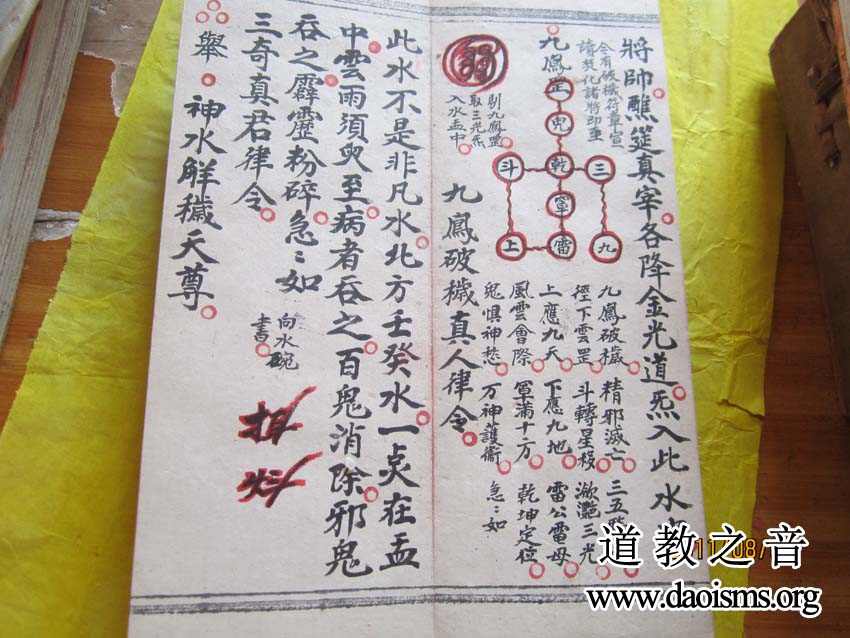 將帥醮筵真宰各降金光道炁入此水
令有破穢符章宣
請焚化諸將即垂
九鳳罡
乾
罩
雷
三
九
斗
上
九鳳破穢。精邪滅亡。三五
徑下雲罡。斗轉星移。瀲灩三光
上應九天。下應九地。雷公雷母
風雲會際。罩滿十方。乾坤定位
鬼惧神愁。万神護衛。急〻如
剔九鳳罡
取三光炁
入水盂中
九鳳破穢真人律令。
此水不是非凡水。北方壬癸水。一点在盂
中雲雨須臾至。病者吞之。百鬼消除。邪鬼
吞之。霹靂粉碎。急〻如
三奇真君律令。
舉。神水觧穢天尊。
向水碗
書。
道教之音
www.daoisms.org